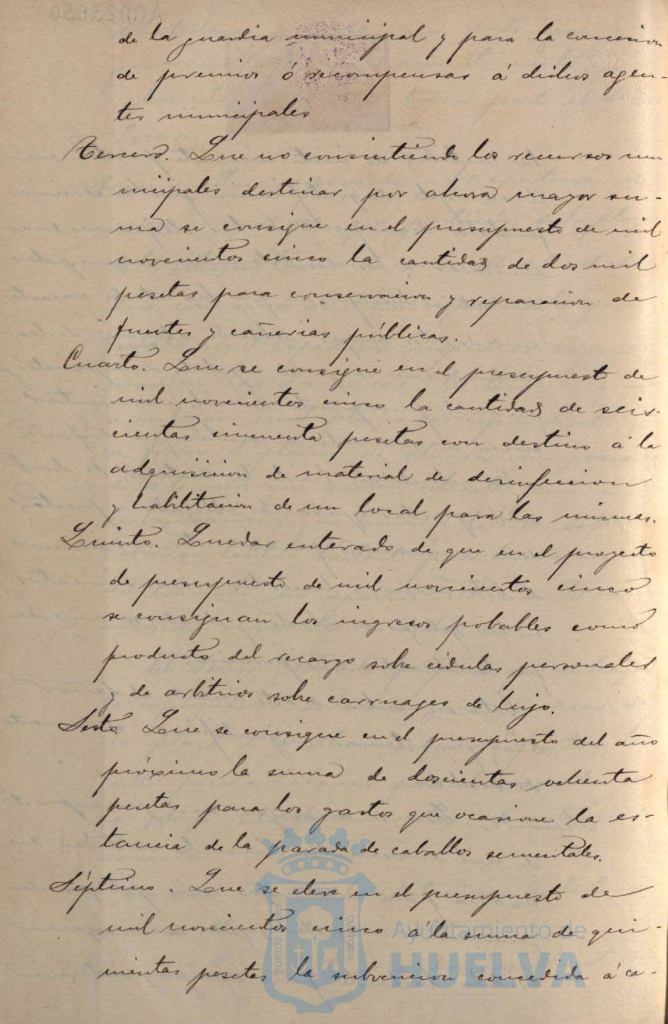 de la guardia municipal y para la concesion
de premios ó recompensas á dichos agen-
tes municipales
Tercero. Que no consintiendo los recursos mu
nicipales destinar por ahora mayor su-
ma se consigne en el presupuesto de mil
novecientos cinco la cantidad de dos mil
pesetas para conservacion y reparacion de
fuentes y cañerias públicas.
Cuarto. Que se consigne en el presupuesto de
mil novecientos cinco la cantidad de seis-
cientas cincuenta pesetas con destino á la
adquisicion de material de desinfeccion
y habilitacion de un local para las mismas.
Quinto. Quedar enterado de que en el proyecto
de presupuesto de mil novecientos cinco
se consignan los ingresos probables como
producto del recargo sobre cédulas personales
y de arbitrios sobre carruages de lujo.
Sesto Que se consigne en el presupuesto del año
próximo la suma de doscientas ochenta
pesetas para los gastos que ocasione la es-
tancia de la parada de caballos sementales.
Séptimo. Que se eleve en el presupuesto de
mil novecientos cinco á la suma de qui-
nientas pesetas la subvencion concedida á ca-
Ayuntamiento de
HUELVA